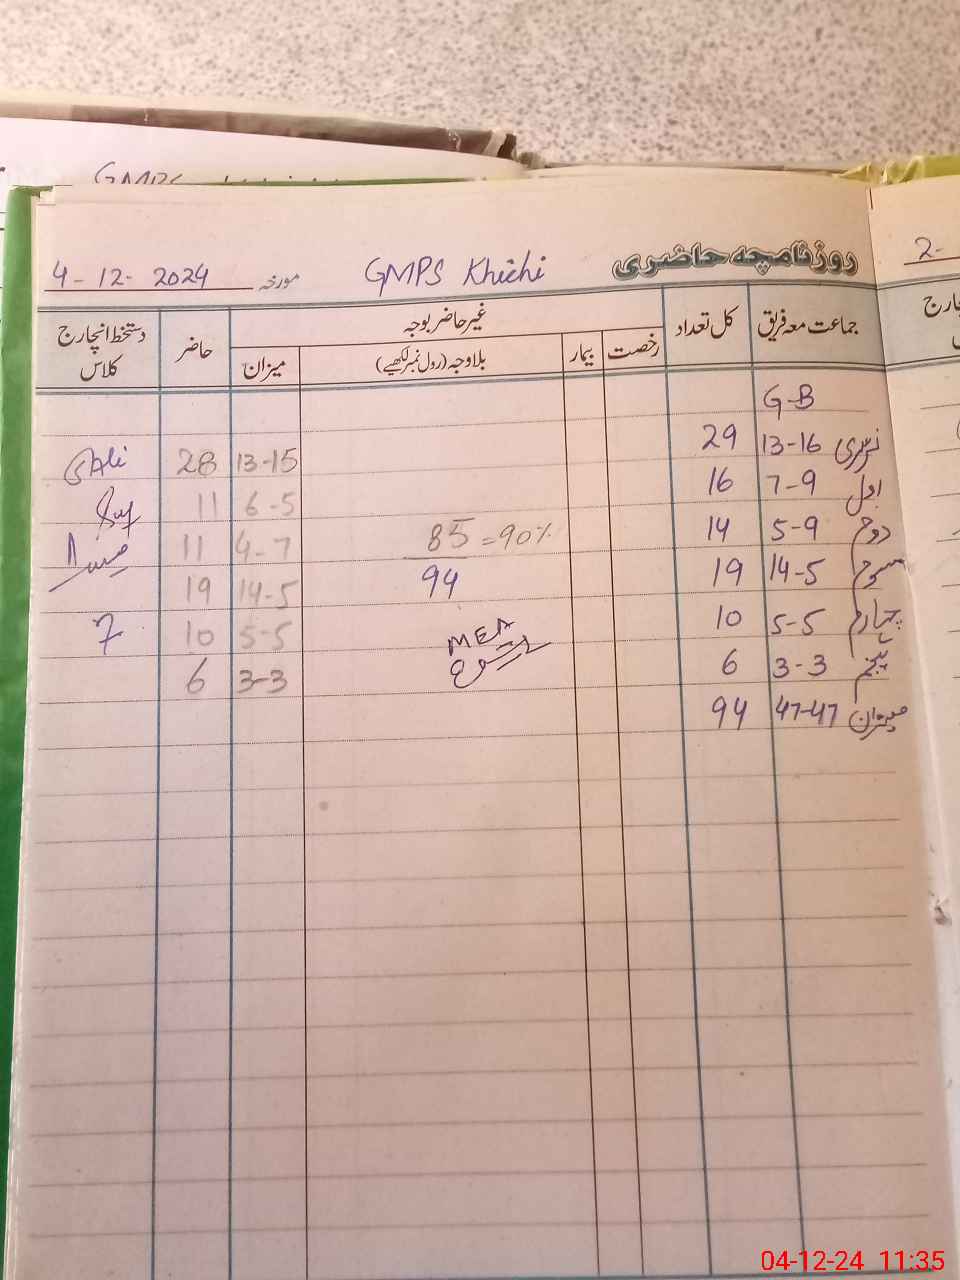 GMPS
روزنامچہ حاضری GMPS Khichi مورخہ 4-12-2024
2-
جماعت معہ فریق کل تعداد غیر حاضر بوجہ حاضر دستخط انچارج کلاس
رخصت بیمار بلاوجہ (رول نمبر لکھیے) میزان
G-B
نرسری 13-16 29 13-15 28 GAli
اول 7-9 16 6-5 11
دوم 5-9 14 85 = 90% 4-7 11
سوم 14-5 19 94 14-5 19
چہارم 5-5 10 MEA 5-5 10
پنجم 3-3 6 3-3 6
میزان 47-47 94
04-12-24 11:35